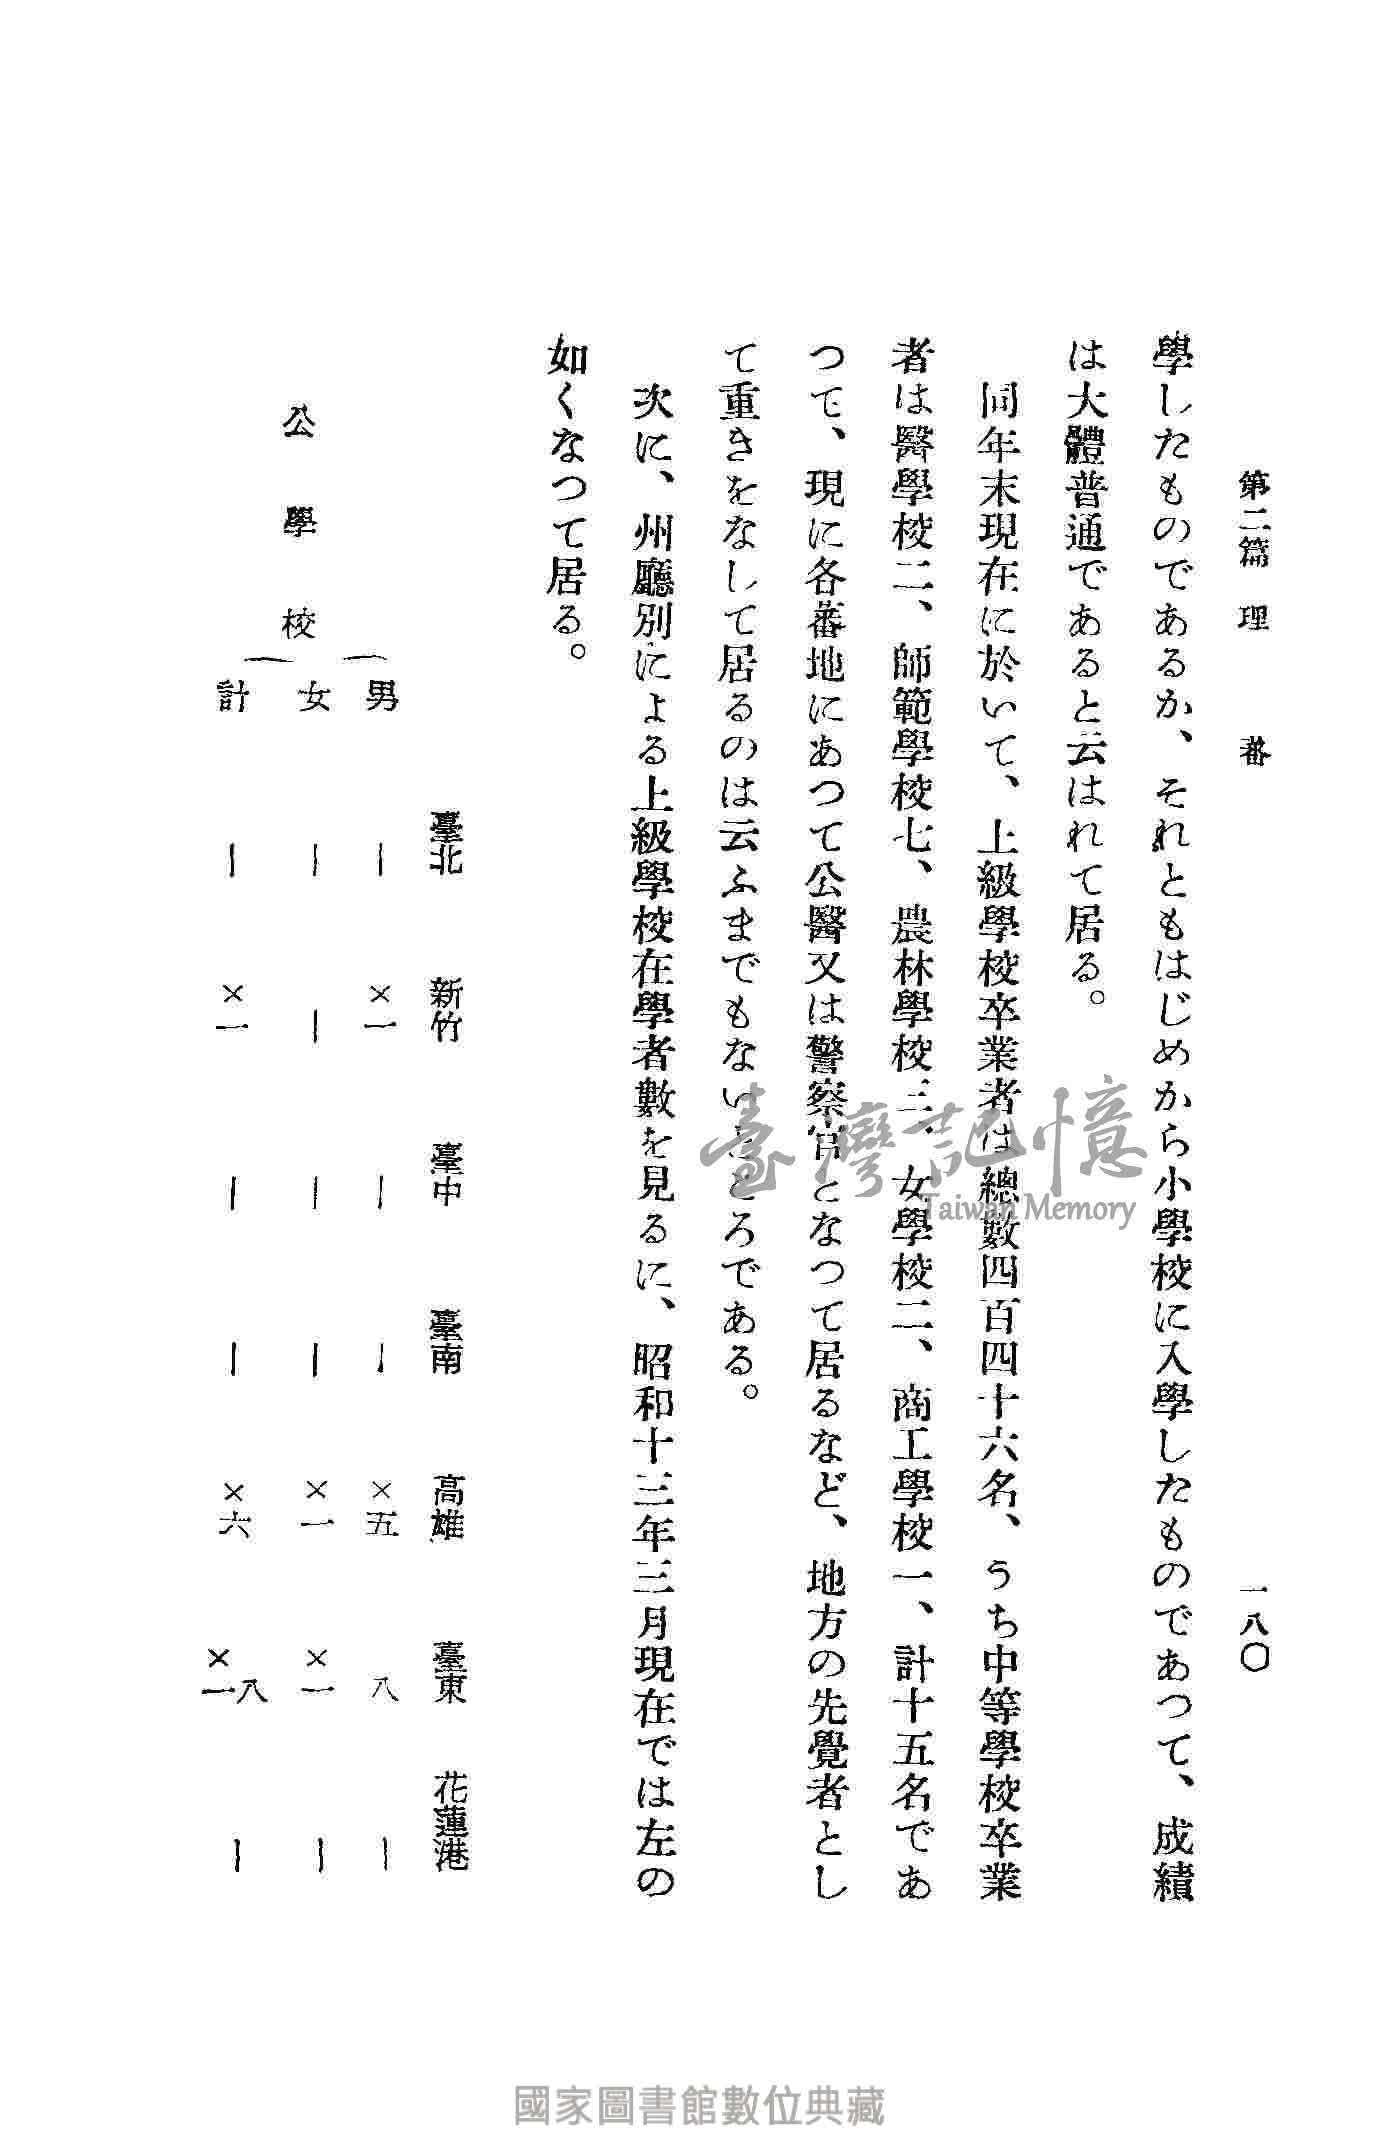 第二篇 理蕃 一八〇
學したものであるか、それともはじめから小學校に入學したものであつて、成績
は大體普通であると云はれて居る。
同年末現在に於いて、上級學校卒業者は總數四百四十六名、うち中等學校卒業
者は醫學校二、師範學校七、農林學校三、女學校二、商工學校一、計十五名であ
つて、現に各蕃地にあつて公醫又は警察官となつて居るなど、地方の先覺者とし
て重きをなして居るのは云ふまでもないところである。
次に、州廳別による上級學校在學者數を見るに、昭和十三年三月現在では左の
如くなつて居る。
臺北 新竹 臺中 臺南 高雄 臺東 花蓮港
男 ― ×一 ― ― ×五 八 ―
公學校 女 ― ― ― ― ×一 ×一 ―
計 ― ×一 ― ― ×六 ×一八 ―
臺灣記憶
Taiwan Memory
國家圖書館數位典藏